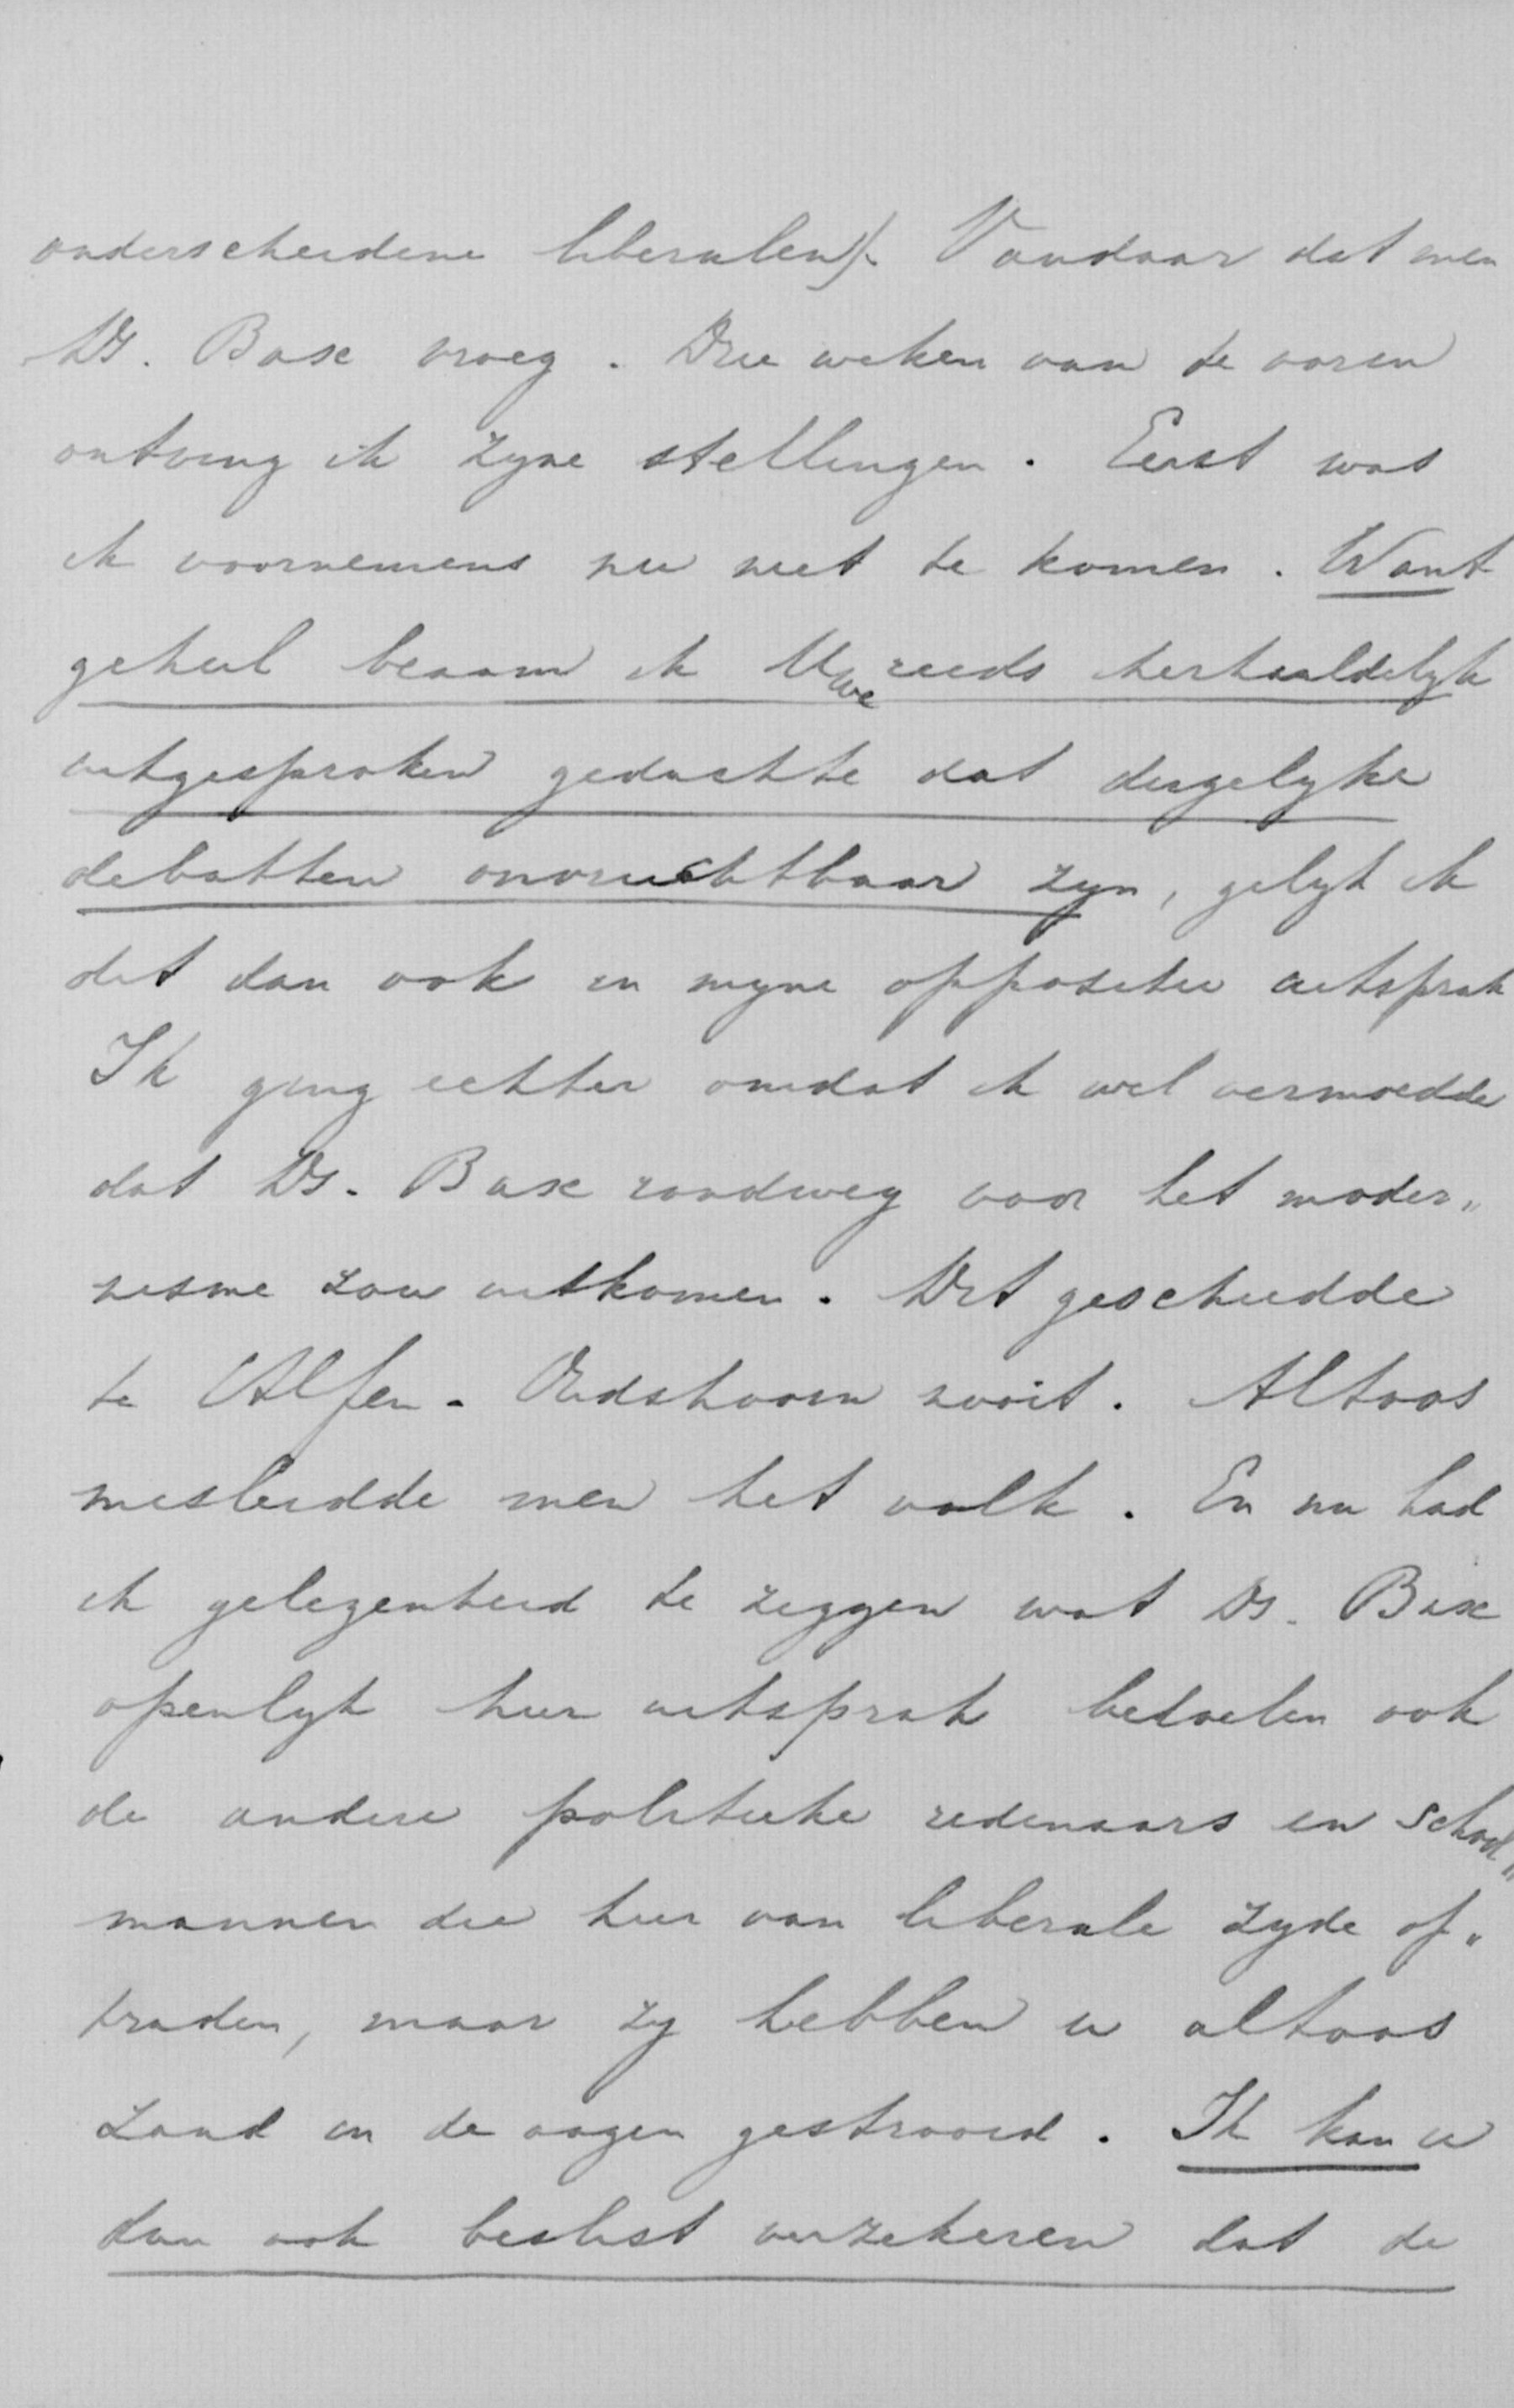 onderscheidene liberalen). Vandaar dat men
Ds. Bax vroeg. Drie weken van te voren
ontving ik zyne stellingen. Eerst was
ik voornemens nu niet te komen. Want
geheel beaam ik Uwe reeds herhaaldelyk
uitgesproken gedachte dat dergelyke
debatten onvruchtbaar zyn, gelyk ik
dit dan ook in myne oppositie uitsprak
Ik ging echter omdat ik wel vermoedde
dat Ds. Bax rondweg voor het moder„
nisme zou uitkomen. Dit geschiedde
te Alfen-Oudshoorn nooit. Altoos
misleidde men het volk. En nu had
ik gelegenheid te zeggen wat Ds. Bax
openlyk hier uitsprak bedoelen ook
de andere politieke redenaars en school„
mannen die hier van liberale zyde op„
traden, maar zy hebben u altoos
zand in de oogen gestrooid. Ik kan u
dan ook beslist verzekeren dat de